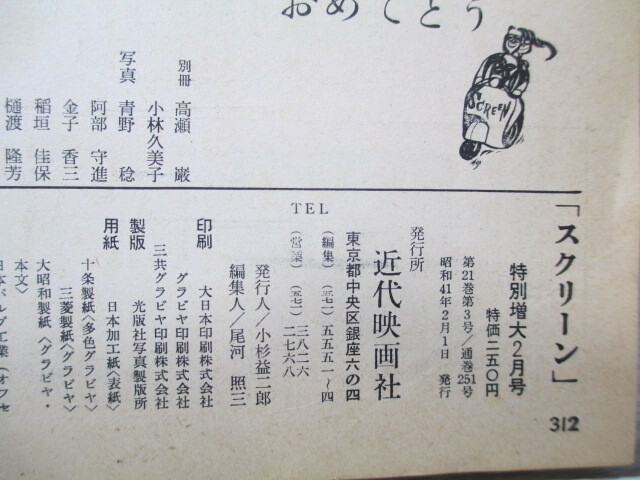 おめでとう
SCREEN
別冊　高瀬　巌
小林久美子
写真　青野　稔
阿部　守進
金子　香三
稲垣　佳保
樋渡　隆芳
「スクリーン」
特別増大2月号
特価二五〇円
第21巻第3号/通巻251号
昭和41年2月1日　発行
発行所
近代映画社
東京都中央区銀座六の四
TEL
(編集)(五七一)五五五一〜四
(営業)(五七一)三八二六
二七六八
発行人/小杉益二郎
編集人/尾河　照三
印刷　大日本印刷株式会社
グラビヤ印刷株式会社
三共グラビヤ印刷株式会社
製版　光版社写真製版所
用紙　日本加工紙〈表紙〉
十条製紙〈多色グラビヤ〉
三菱製紙〈グラビヤ〉
大昭和製紙〈グラビヤ・
本文〉
日本パルプ工業(オフセ
312